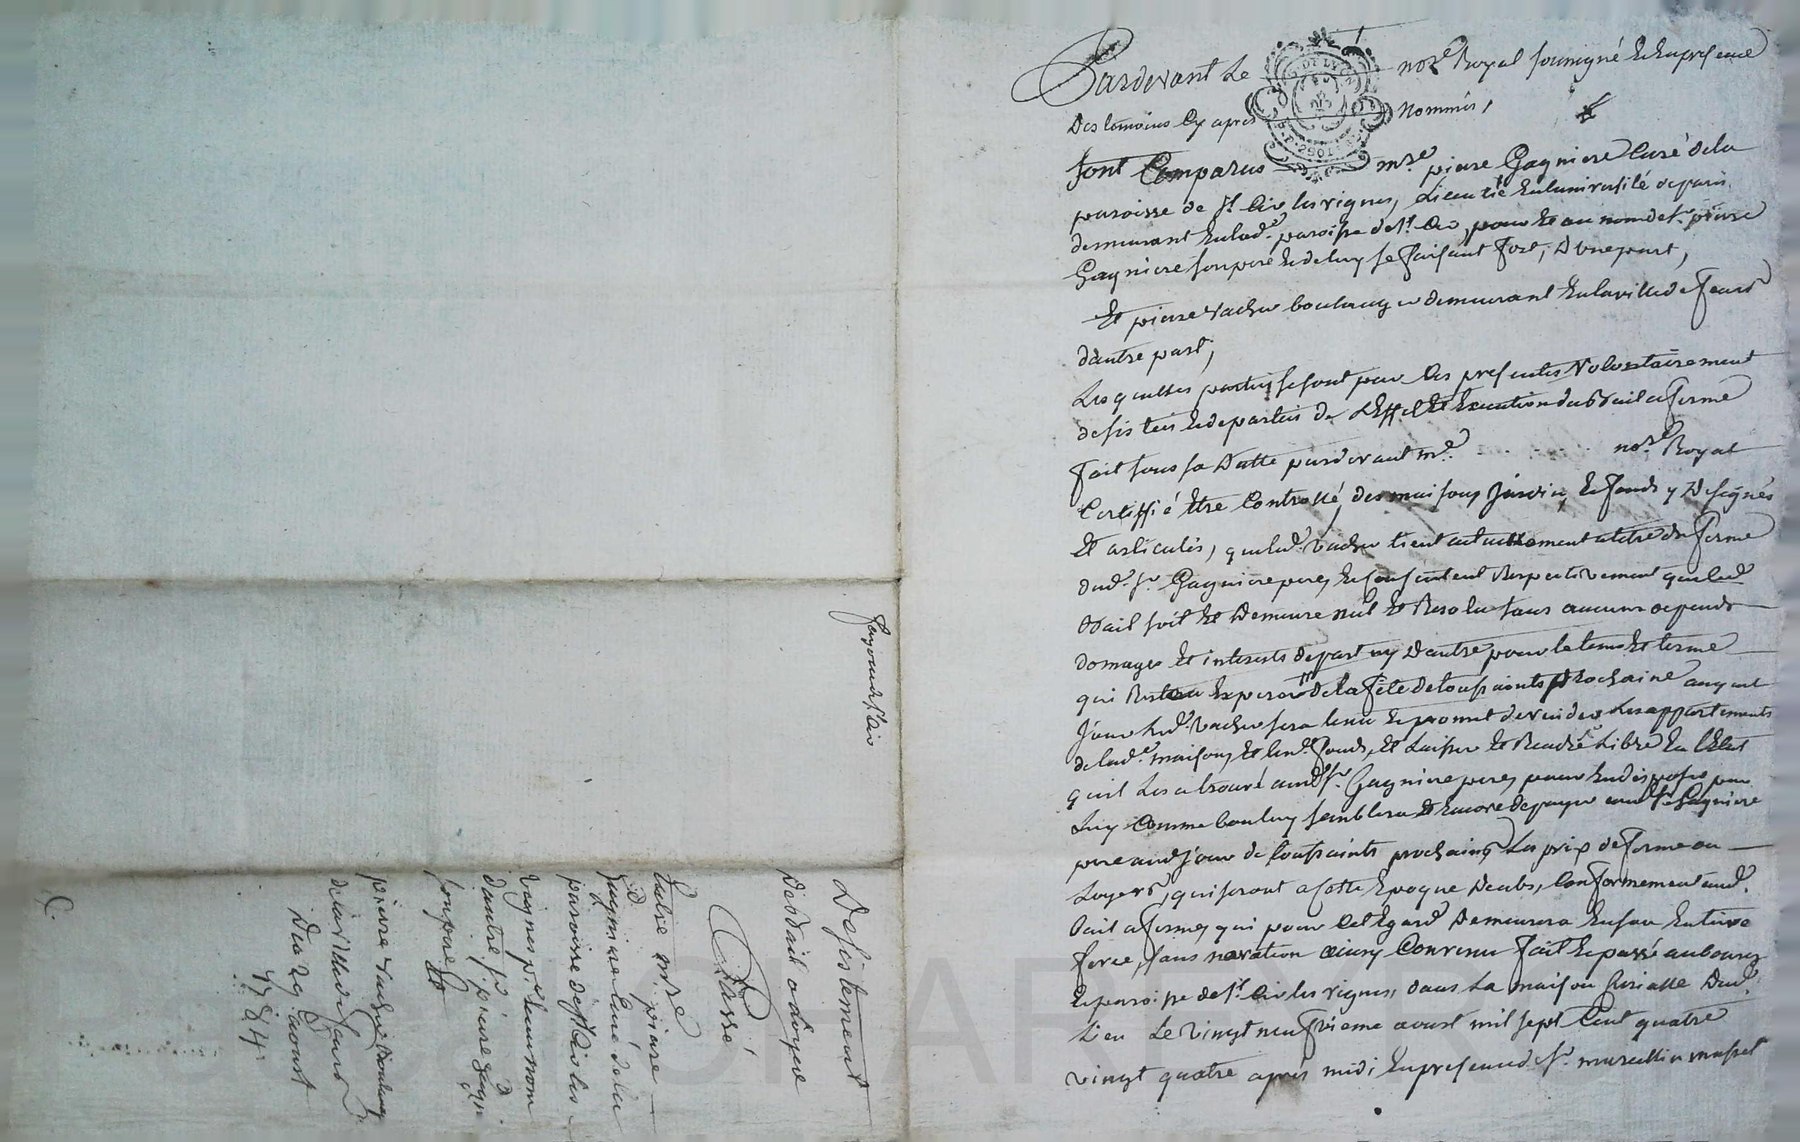 Pardevant Le nore Royal soussigné Et En presence
Des temoins Cy apres Nommés,
GEN. DE LYON
Sont Comparus mre. pierre Gagniere Curé de la
paroisse de st. Cir les vignes, Licentié En luniversité de paris
demeurant En lad. paroisse de st. Cir, pour Et au nom de sr. pierre
Gagniere son pere Et de luy se faisant fort, D'une part,
Et pierre vacher boulanger demeurant En la ville de feurs
d'autre part,
Lesquelles parties se sont par Ces presentes Volontairement
desistées Et departies de L'Effet Et Execution du Bail a ferme
fait sous sa Datte pardevant me. nore. Royal
Certiffié être Controllé, des maisons, Jardin, Et fonds y Designés
Et articulés, que led. vacher tient actuellement a titre de ferme
dud. sr. Gagniere pere, Et consentent Respectivement que led.
Bail soit Et Demeure nul Et Resolu sans aucuns depends
domages Et interests de part ny D'autre pour le tems Et terme
qui Reste a Expirer de la fête de toussaints prochaine auquel
Jour led. vacher sera tenu Et promet de vuider Les appartements
de lad. maison, Et lesd. fonds, Et Laisser Et Rendre Libre En l'Etat
qu'il Les a trouvé aud. sr. Gagniere pere, pour En disposer par
Luy Comme bon luy semblera Et Encore de payer aud. sr. Gagniere
pere aud. jour de toussaints prochains Les prix de ferme ou
Loyers, qui seront a Cette Epoque Deubs, Conformement aud.
Bail a ferme, qui pour Cet Egard Demeurera En son Entiere
force, sans novation ainsy Convenu fait Et passé au bourg
Et paroisse de st. Cir les vignes, dans La maison Curialle Dud.
Lieu Le vingt neufvieme aoust mil sept Cent quatre
vingt quatre apres midi, En presence de sr. marcellin
Desistement
De Bail a Loyere
Passé
Entre mre pierre
Gagniere Curé de la
paroisse de st Cir les
vignes pr. leur nom
d'autre sr. pierre Gagn
son pere Et
pierre vacher Boulanger
de la ville de feurs
Du 29 aoust
1784.